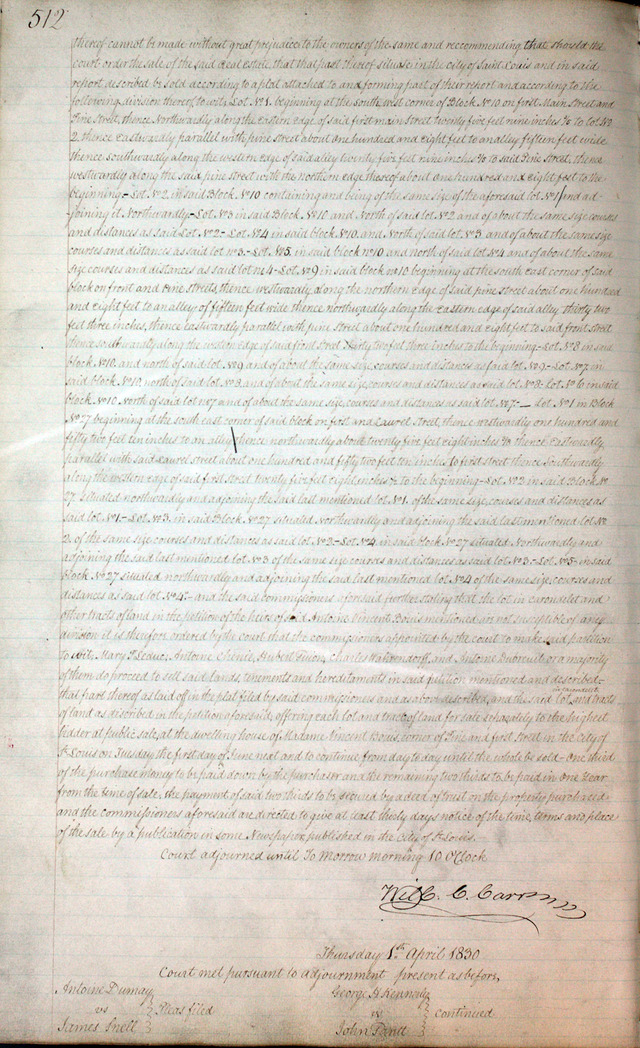 512
thereof cannot be made without great prejudice to the owners of the same and reccommending that should the
court order the sale of the said real estate that that part thereof situate in the city of Saint Louis and in said
report described be sold according to a plat attached to and forming part of their report and according to the
following division thereof, to wit, Lot No 1, beginning at the south west corner of Block No 10 on first Main Street and
Pine Street, thence Northwardly along the eastern edge of said first main street twenty five feet nine inches to Lot No
2, thence eastwardly parallel with pine street about one hundred and eight feet to an alley fifteen feet wide
thence southwardly along the western edge of said alley twenty five feet nine inches to said Pine street, thence
westwardly along the said pine street with the northern edge thereof about one hundred and eight feet to the
beginning - Lot No 2 in said Block No 10 containing and being of the same size of the aforesaid lot No 1 and ad-
joining it Northwardly - Lot No 3 in said Block No 10 and North of said lot No 2 and of about the same size courses
and distances as said Lot No 2 - Lot No 4 in said block No 10 and North of said lot No 3 and of about the same size
courses and distances as said lot No 3 - Lot No 5 in said block No 10 and north of said lot No 4 and of about the same
size courses and distances as said lot No 4 - Lot No 9 in said block No 10 beginning at the south east corner of said
block on front and Pine streets, thence westwardly along the northern edge of said pine street about one hundred
and eight feet to an alley of fifteen feet wide thence northwardly along the eastern edge of said alley thirty two
feet three inches, thence eastwardly parallel with pine street about one hundred and eight feet to said front street
thence southwardly along the western edge of said front street thirty two feet three inches to the beginning - Lot No 8 in said
block No 10 and north of said lot No 9 and of about the same size, courses and distances as said lot No 9 - Lot No 7 in
said block No 10 north of said lot No 8 and of about the same size, courses and distances as said lot No 8 - Lot No 6 in said
block No 10 North of said lot No 7 and of about the same size, courses and distances as said lot No 7 - Lot No 1 in Block
No 27 beginning at the south east corner of said block on first and Laurel street, thence westwardly one hundred and
fifty two feet ten inches to an alley thence northwardly about twenty five feet eight inches thence eastwardly
parallel with said Laurel street about one hundred and fifty two feet ten inches to first street thence Southwardly
along the western edge of said first street twenty five feet eight inches to the beginning - Lot No 2 in said Block No
27 situated northwardly and adjoining the said last mentioned lot No 1, of the same size, courses and distances as
said lot No 1 - Lot No 3, in said Block No 27 situated Northwardly and adjoining the said last mentioned lot No
2, of the same size courses and distances as said lot No 2 - Lot No 4, in said block No 27 situated Northwardly and
adjoining the said last mentioned lot No 3 of the same size courses and distances as said lot No 3 - Lot No 5 in said
block No 27 situated northwardly and adjoining the said last mentioned lot No 4 of the same size, courses and
distances as said lot No 4 - and the said commissioners aforesaid further stating that the lot in carondelet and
other tracts of land in the petition of the heirs of said Antoine Vincent Bouis mentioned are not susceptible of any
division it is therefore ordered by the court that the commissioners appointed by the court to make said partition
to wit, Mary P. Leduc, Antoine Chenie, Hubert Guion, Charles Wahrendorff, and Antoine Dubreuil or a majority
of them do proceed to sell said lands, tenements and hereditaments in said petition mentioned and described -
that part thereof as laid off in the plat filed by said commissioners and as above described, and the said lot in carondelet and tracts
of land as described in the petition aforesaid, offering each lot and tract of land for sale separately to the highest
bidder at public sale, at the dwelling house of Madame Vincent Bouis, corner of Pine and first Street in the City of
St Louis on Tuesday the first day of June next and to continue from day to day until the whole be sold - One third
of the purchase money to be paid down by the purchaser and the remaining two thirds to be paid in One Year
from the time of sale, the payment of said two thirds to be secured by a deed of trust on the property purchased
and the commissioners aforesaid are directed to give at least thirty days notice of the time, terms and place
of the sale by a publication in some Newspaper published in the City of St Louis.
Court adjourned until To Morrow morning 10 O'Clock
Wil C. Carr
Thursday 1st April 1830
Court met pursuant to adjournment present as before,
Antoine Dumay
vs Pleas filed
James Snell
George H Kennerly
vs continued
John